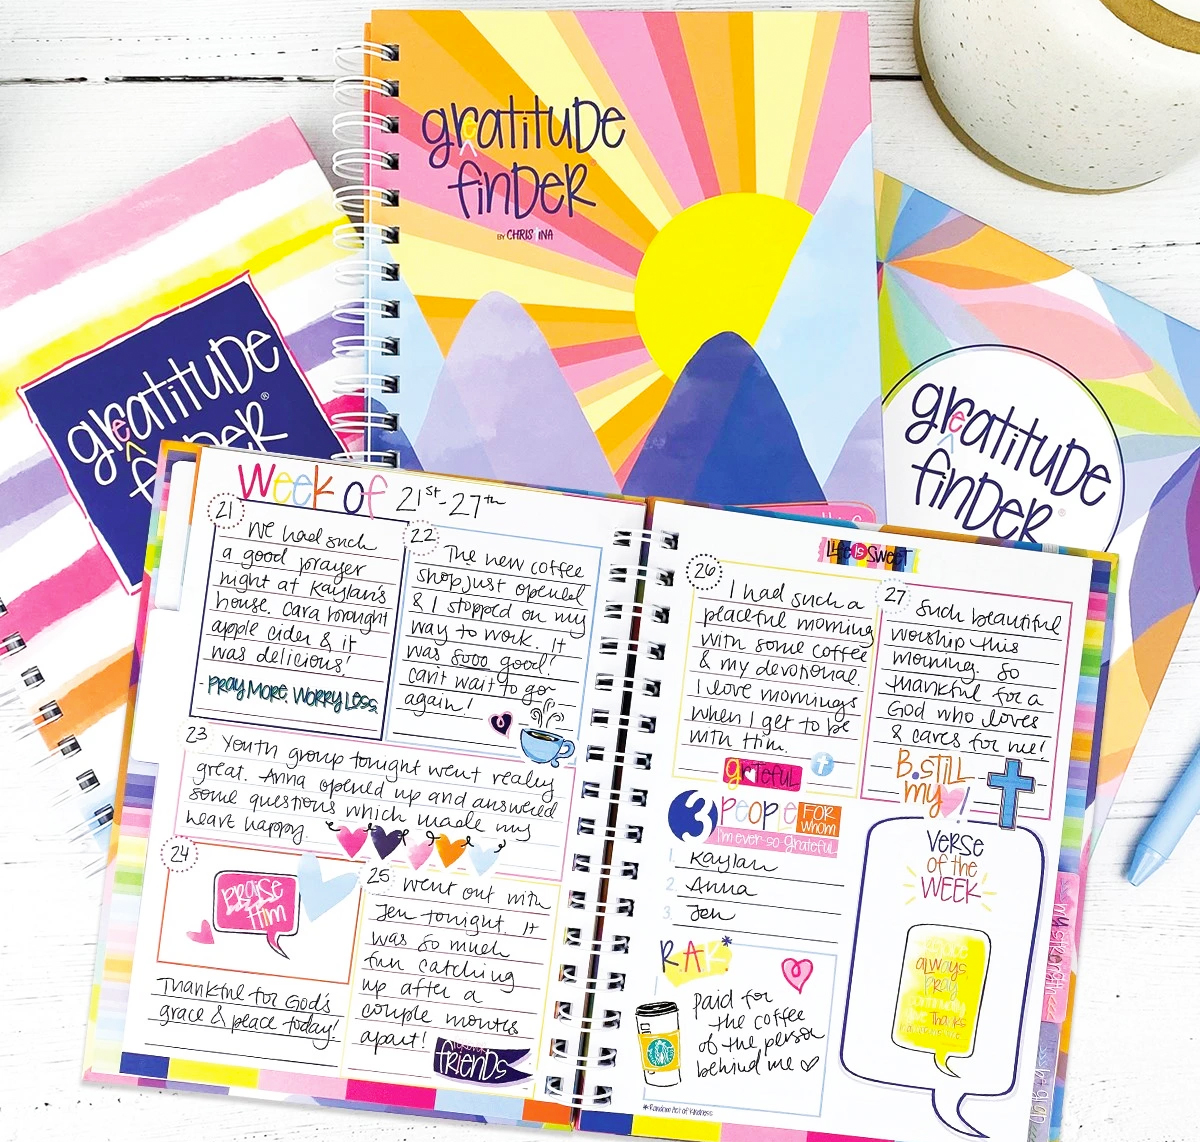 gratitude
e
^
finder®
BY CHRISTINA
gratitude
e
^
finder
®
gratitude
e
^
finder
®
Week of 21st-27th
21
We had such
a good prayer
night at Kaylan's
house. Cara brought
apple cider & it
was delicious!
- Pray More. Worry Less.
22
The new coffee
shop just opened
& I stopped on my
way to work. It
was sooo good!
can't wait to go
again!
23
Youth group tonight went really
great. Anna opened up and answered
some questions which made my
heart happy.
24
Praise
Him
Thankful for God's
grace & peace today!
25
Went out with
Jen tonight. It
was so much
fun catching
up after a
couple months
apart!
friends
Life is Sweet
26
I had such a
peaceful morning
with some coffee
& my devotional.
I love mornings
when I get to be
with Him.
grateful
27
Such beautiful
worship this
morning. So
thankful for a
God who loves
& cares for me!
B. still
my !
3 PEOPLE FOR
WHOM
I'm ever-so grateful
1. Kaylan
2. Anna
3. Jen
R.A.K.*
Paid for
the coffee
of the person
behind me ♡
*Random Act of Kindness
VERSE
of the
WEEK
always
pray
thanks
my strength